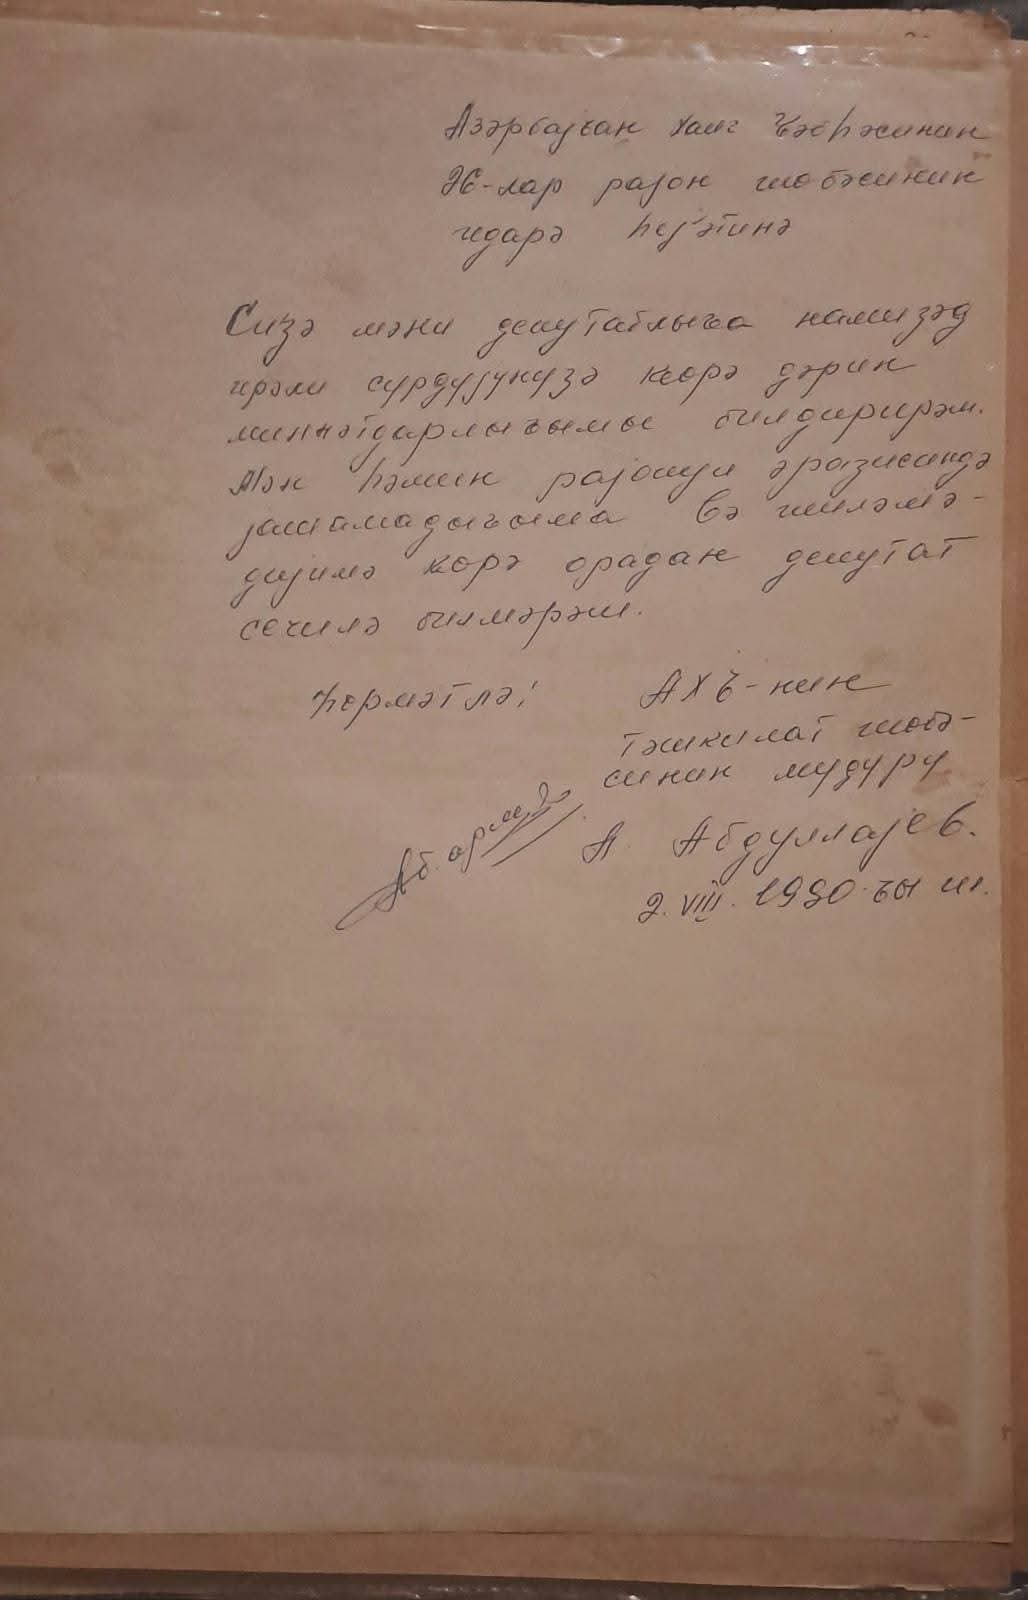 Азәрбајҹан Халг Ҹәбһәсинин
26-лар рајон шөбәсинин
идарә һеј'әтинә
Сизә мәни депутатлыға намизәд
ирәли сүрдүјүнүзә ҝөрә дәрин
миннәтдарлығымы билдирирәм.
Мән һәмин рајонун әразисиндә
јашамадығыма вә ишләмә-
дијимә ҝөрә орадан депутат
сечилә билмәрәм.
Һөрмәтлә: АХҸ-нин
тәшкилат шөбә-
синин мүдүрү
А. Абдуллајев.
2. VIII. 1990-ҹы ил.